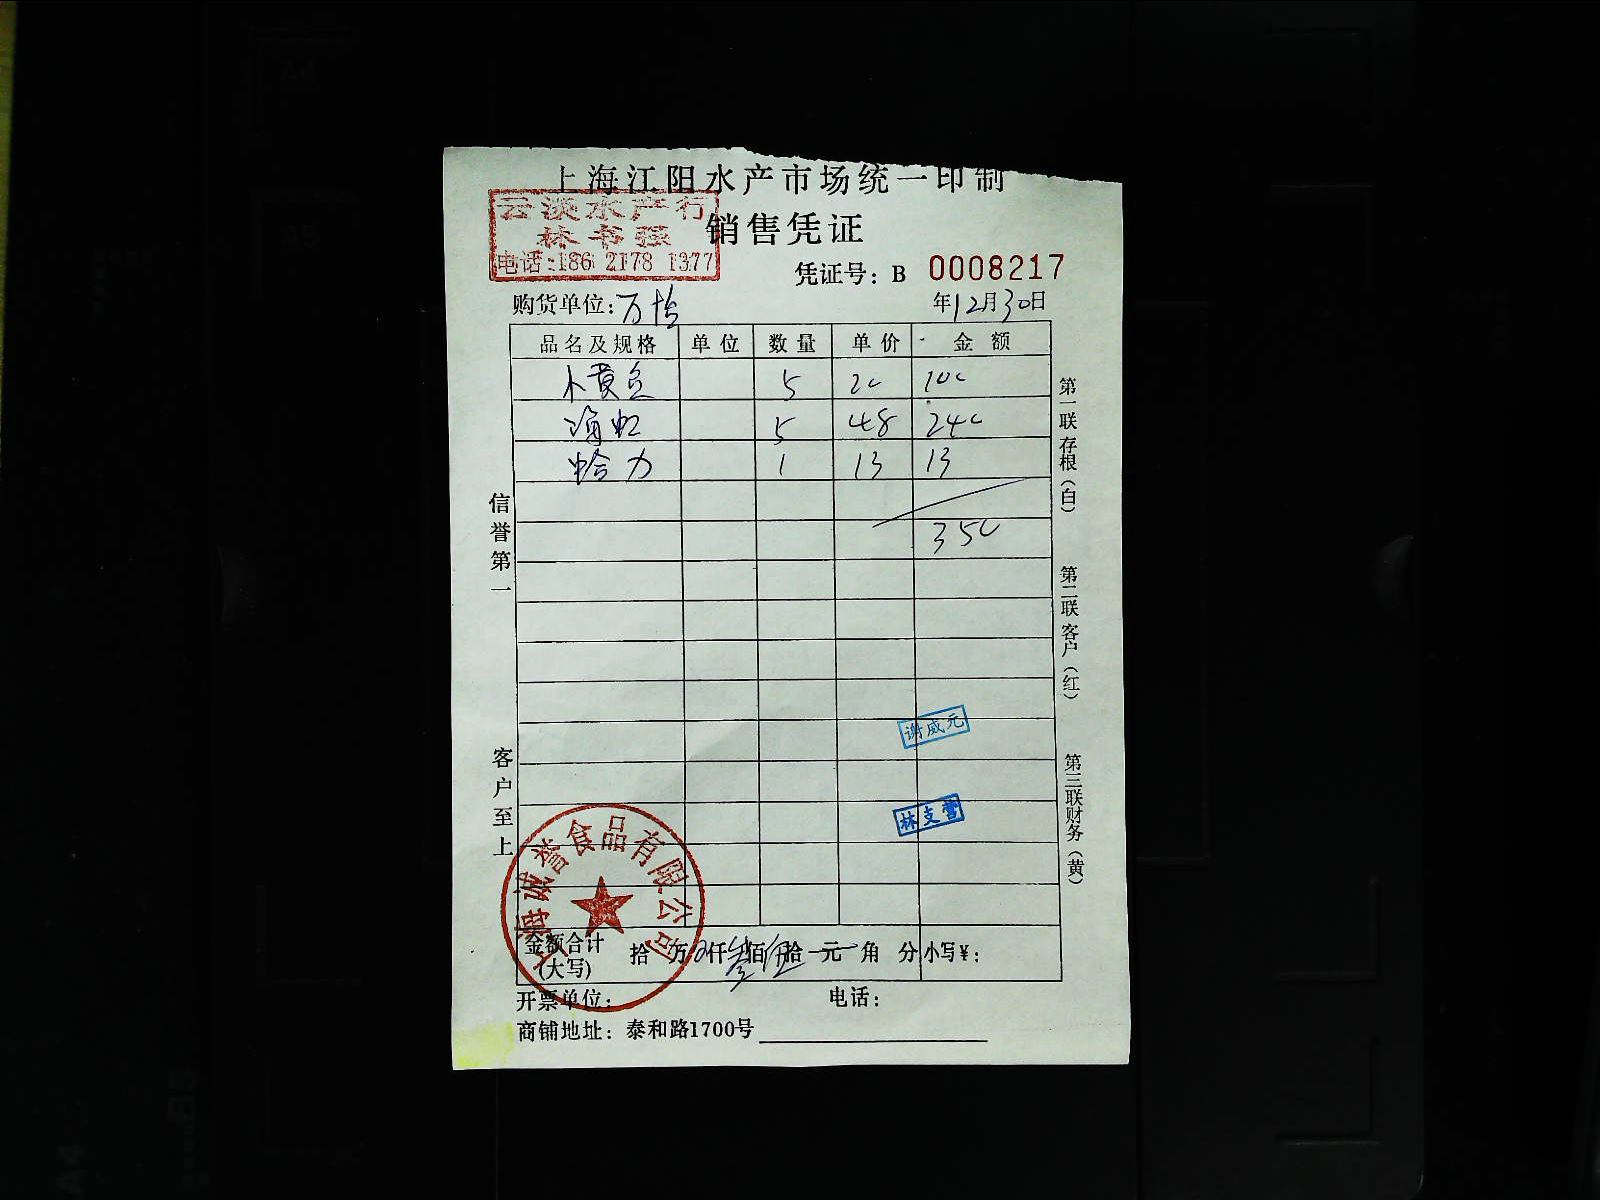 上海江阳水产市场统一印制
云淡水产行
林书强
电话:186 2178 1377
销售凭证
凭证号：B 0008217
购货单位:万怡
年12月30日
品名及规格 单位 数量 单价 金额
小黄鱼 5 20 100
5 48 240
蛤力 1 13 13
350
信誉第一
客户至上
第一联存根（白）
第二联客户（红）
第三联财务（黄）
谢威元
林支营
上海诚誉食品有限公司
金额合计(大写) 拾 万 仟叁佰伍拾 元 角 分 小写¥：
开票单位： 电话：
商铺地址：泰和路1700号